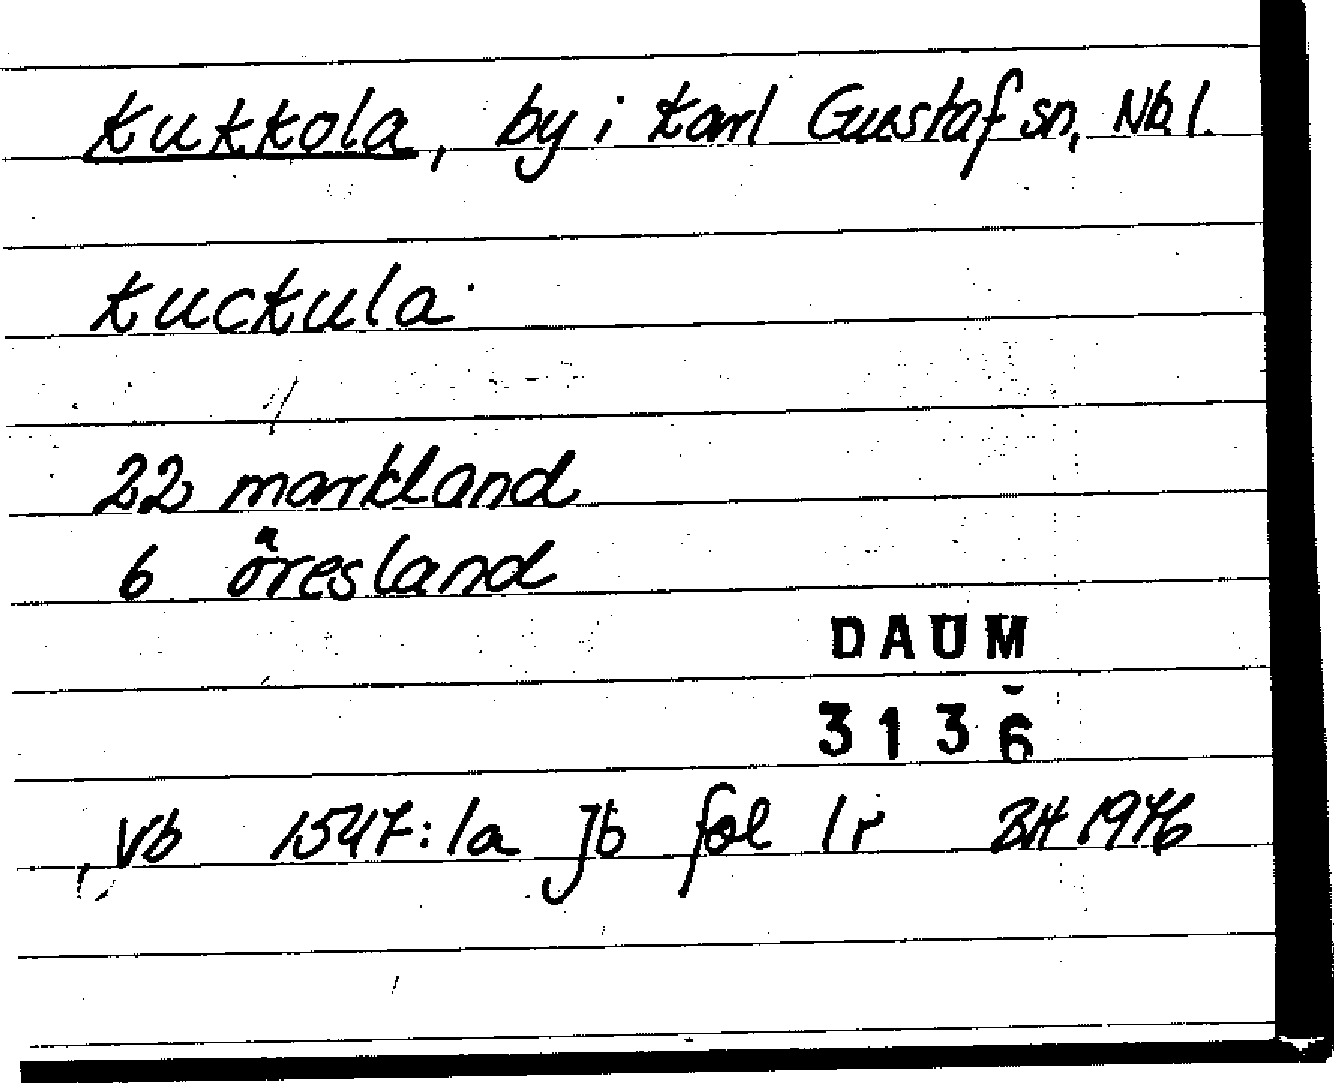 Kukkola, by i Karl Gustaf sn, Nb l.
Kuckula
22 markland
6 öresland
DAUM
3136
Vb 1547:1a Jb fol 1r BH 1976